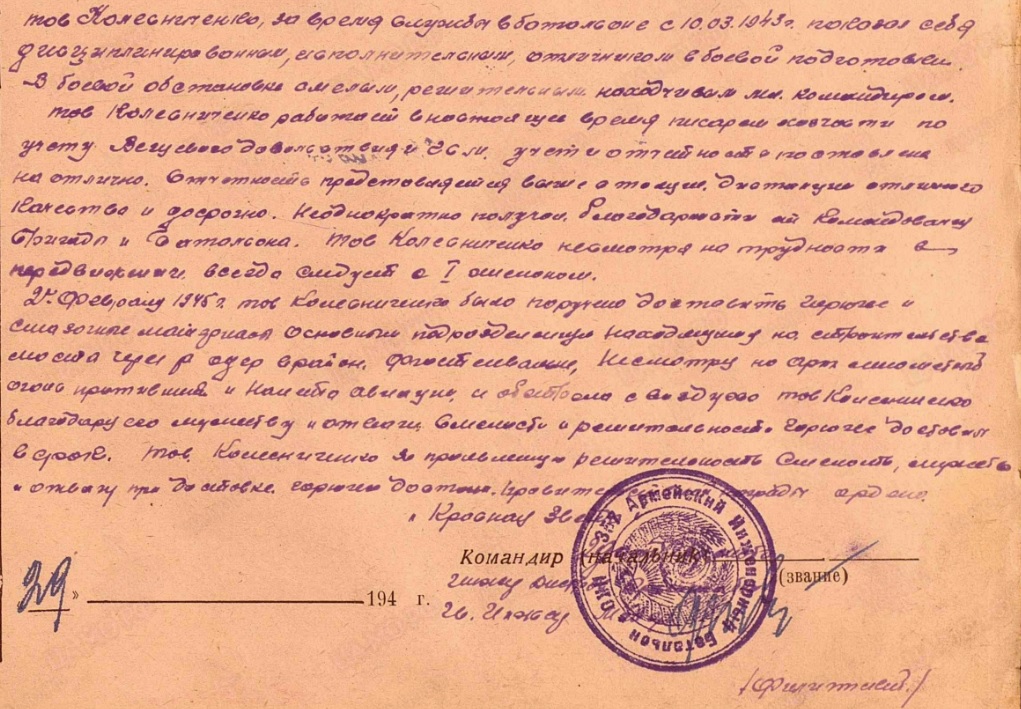 тов Колесниченко, за время службы в батальоне с 10.03.1943г. показал себя
дисциплинированным, исполнительным, отличником в боевой подготовки.
В боевой обстановке смелым, решительным находчивым мл. командиром.
тов Колесниченко работает в настоящее время писарем хозчасти по
учету Вещевого довольствия и учет и отчетность поставлена
на отлично. Отчетность представляется выше отличного
качества и досрочно. Неоднократно получал благодарности от Командования
Бригады и Батальона. тов Колесниченко несмотря на трудности в
передвижении всегда следует с I эшелоном.
февраля 1945г. тов Колесниченко было поручено доставить Горючее и
смазочные материалы основным подразделениям находящимся на строительстве
моста через р Одер в район, несмотря на арт минометный
огонь противника и налеты авиации, и обстрела с воздуха тов Колесниченко
благодаря его мужеству и отваги Смелости и решительности Горючее доставил
в срок. тов. Колесниченко За проявленную решительность Смелость, мужество
и отвагу при доставке горючего достоин Правительственной награды ордена
"Красная
Командир (начальник)
(звание)
Гв. Инжен
29 » 194 г.
Армейский Инженерный Батальон